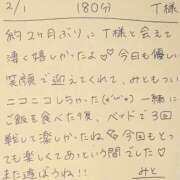 2/1 180分 T様
約2ヶ月ぶりにT様と会えて
凄く嬉しかったよ♡今日も優しい
笑顔で迎えてくれて、みともつい
ニコニコしちゃった(*'ω'*) 一緒に
ご飯を食べた後、ベッドで3回
戦して楽しかったね♡今回もとっ
ても楽しくてあっという間でした♡
また遊ぼうね!! みと